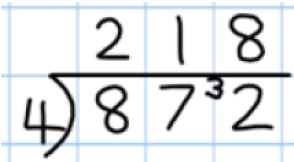 2 1 8
4)87³2